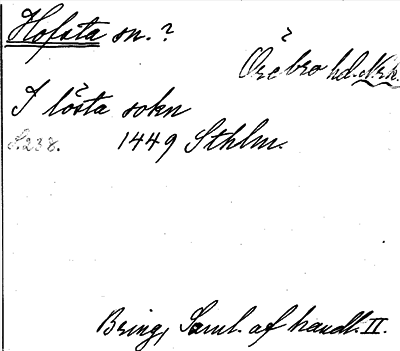 Hofsta sn.?
Örebro hd. Nrk.
I lösta sokn
S. 238. 1449 Sthlm.
Bring, Saml. af handl. II.